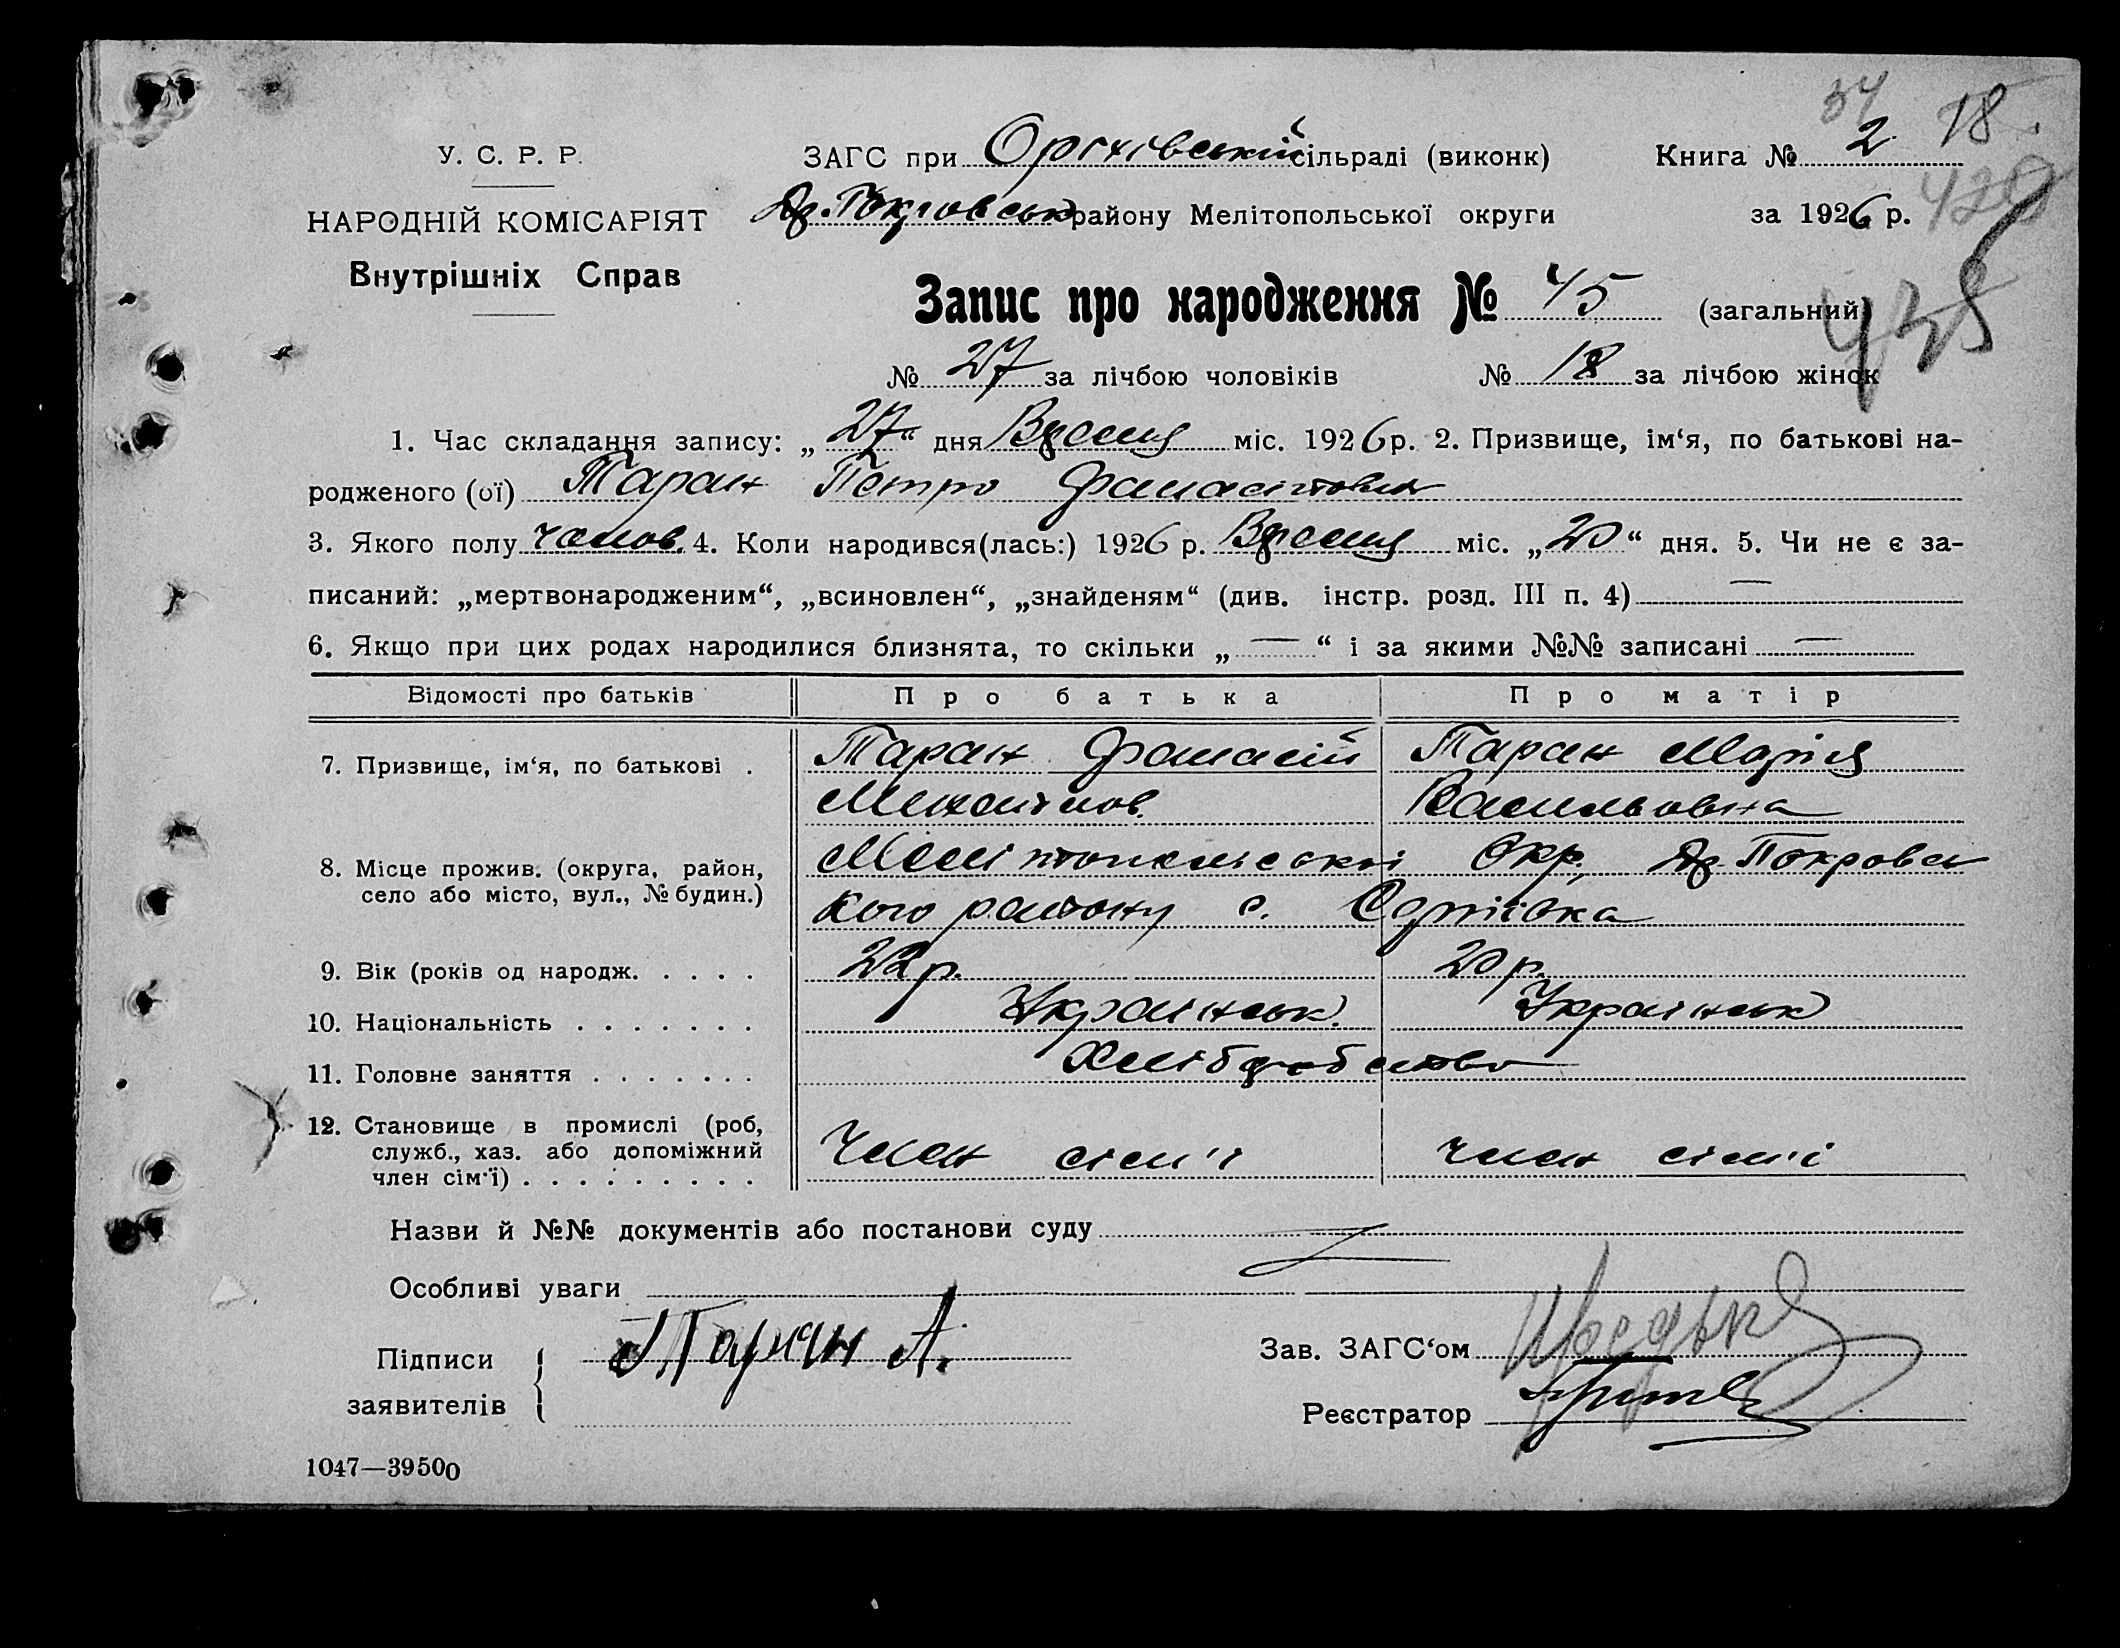 34 18
У. С. Р. Р. ЗАГС при сільраді (виконк) Книга № 2
420
НАРОДНІЙ КОМІСАРІЯТ району Мелітопольської округи за 1926 р.
Внутрішніх Справ
Запис про народження № 45 (загальний)
№ 27 за лічбою чоловіків № 18 за лічбою жінок
1. Час складання запису: „27“ дня міс. 1926 р. 2. Призвище, ім‘я, по батькові на-
родженого (ої) Таран Петро
3. Якого полу чолов. 4. Коли народився(лась:) 1926 р. міс. „20“ дня. 5. Чи не є за-
писаний: „мертвонародженим“, „всиновлен“, „знайденям“ (див. інстр. розд. III п. 4) —
6. Якщо при цих родах народилися близнята, то скільки „—“ і за якими №№ записані —
Відомості про батьків Про батька Про матір
7. Призвище, ім‘я, по батькові . Таран Фанасій Таран Марія
Михайлов. Васильовна
8. Місце прожив. (округа, район, Окр., Др. Покровсь
село або місто, вул., № будин.) кого району с.
9. Вік (років од народж. . . . . 22 р. 20 р.
10. Національність . . . . . . . Українськ. Українськ
11. Головне заняття . . . . . . . Хліборобство
12. Становище в промислі (роб,
служб., хаз. або допоміжний член сім'ї член сім'ї
член сім'ї) . . . . . . . . .
Назви й №№ документів або постанови суду
Особливі уваги
Підписи Таран А. Зав. ЗАГС‘ом
заявителів Реєстратор
1047—39500